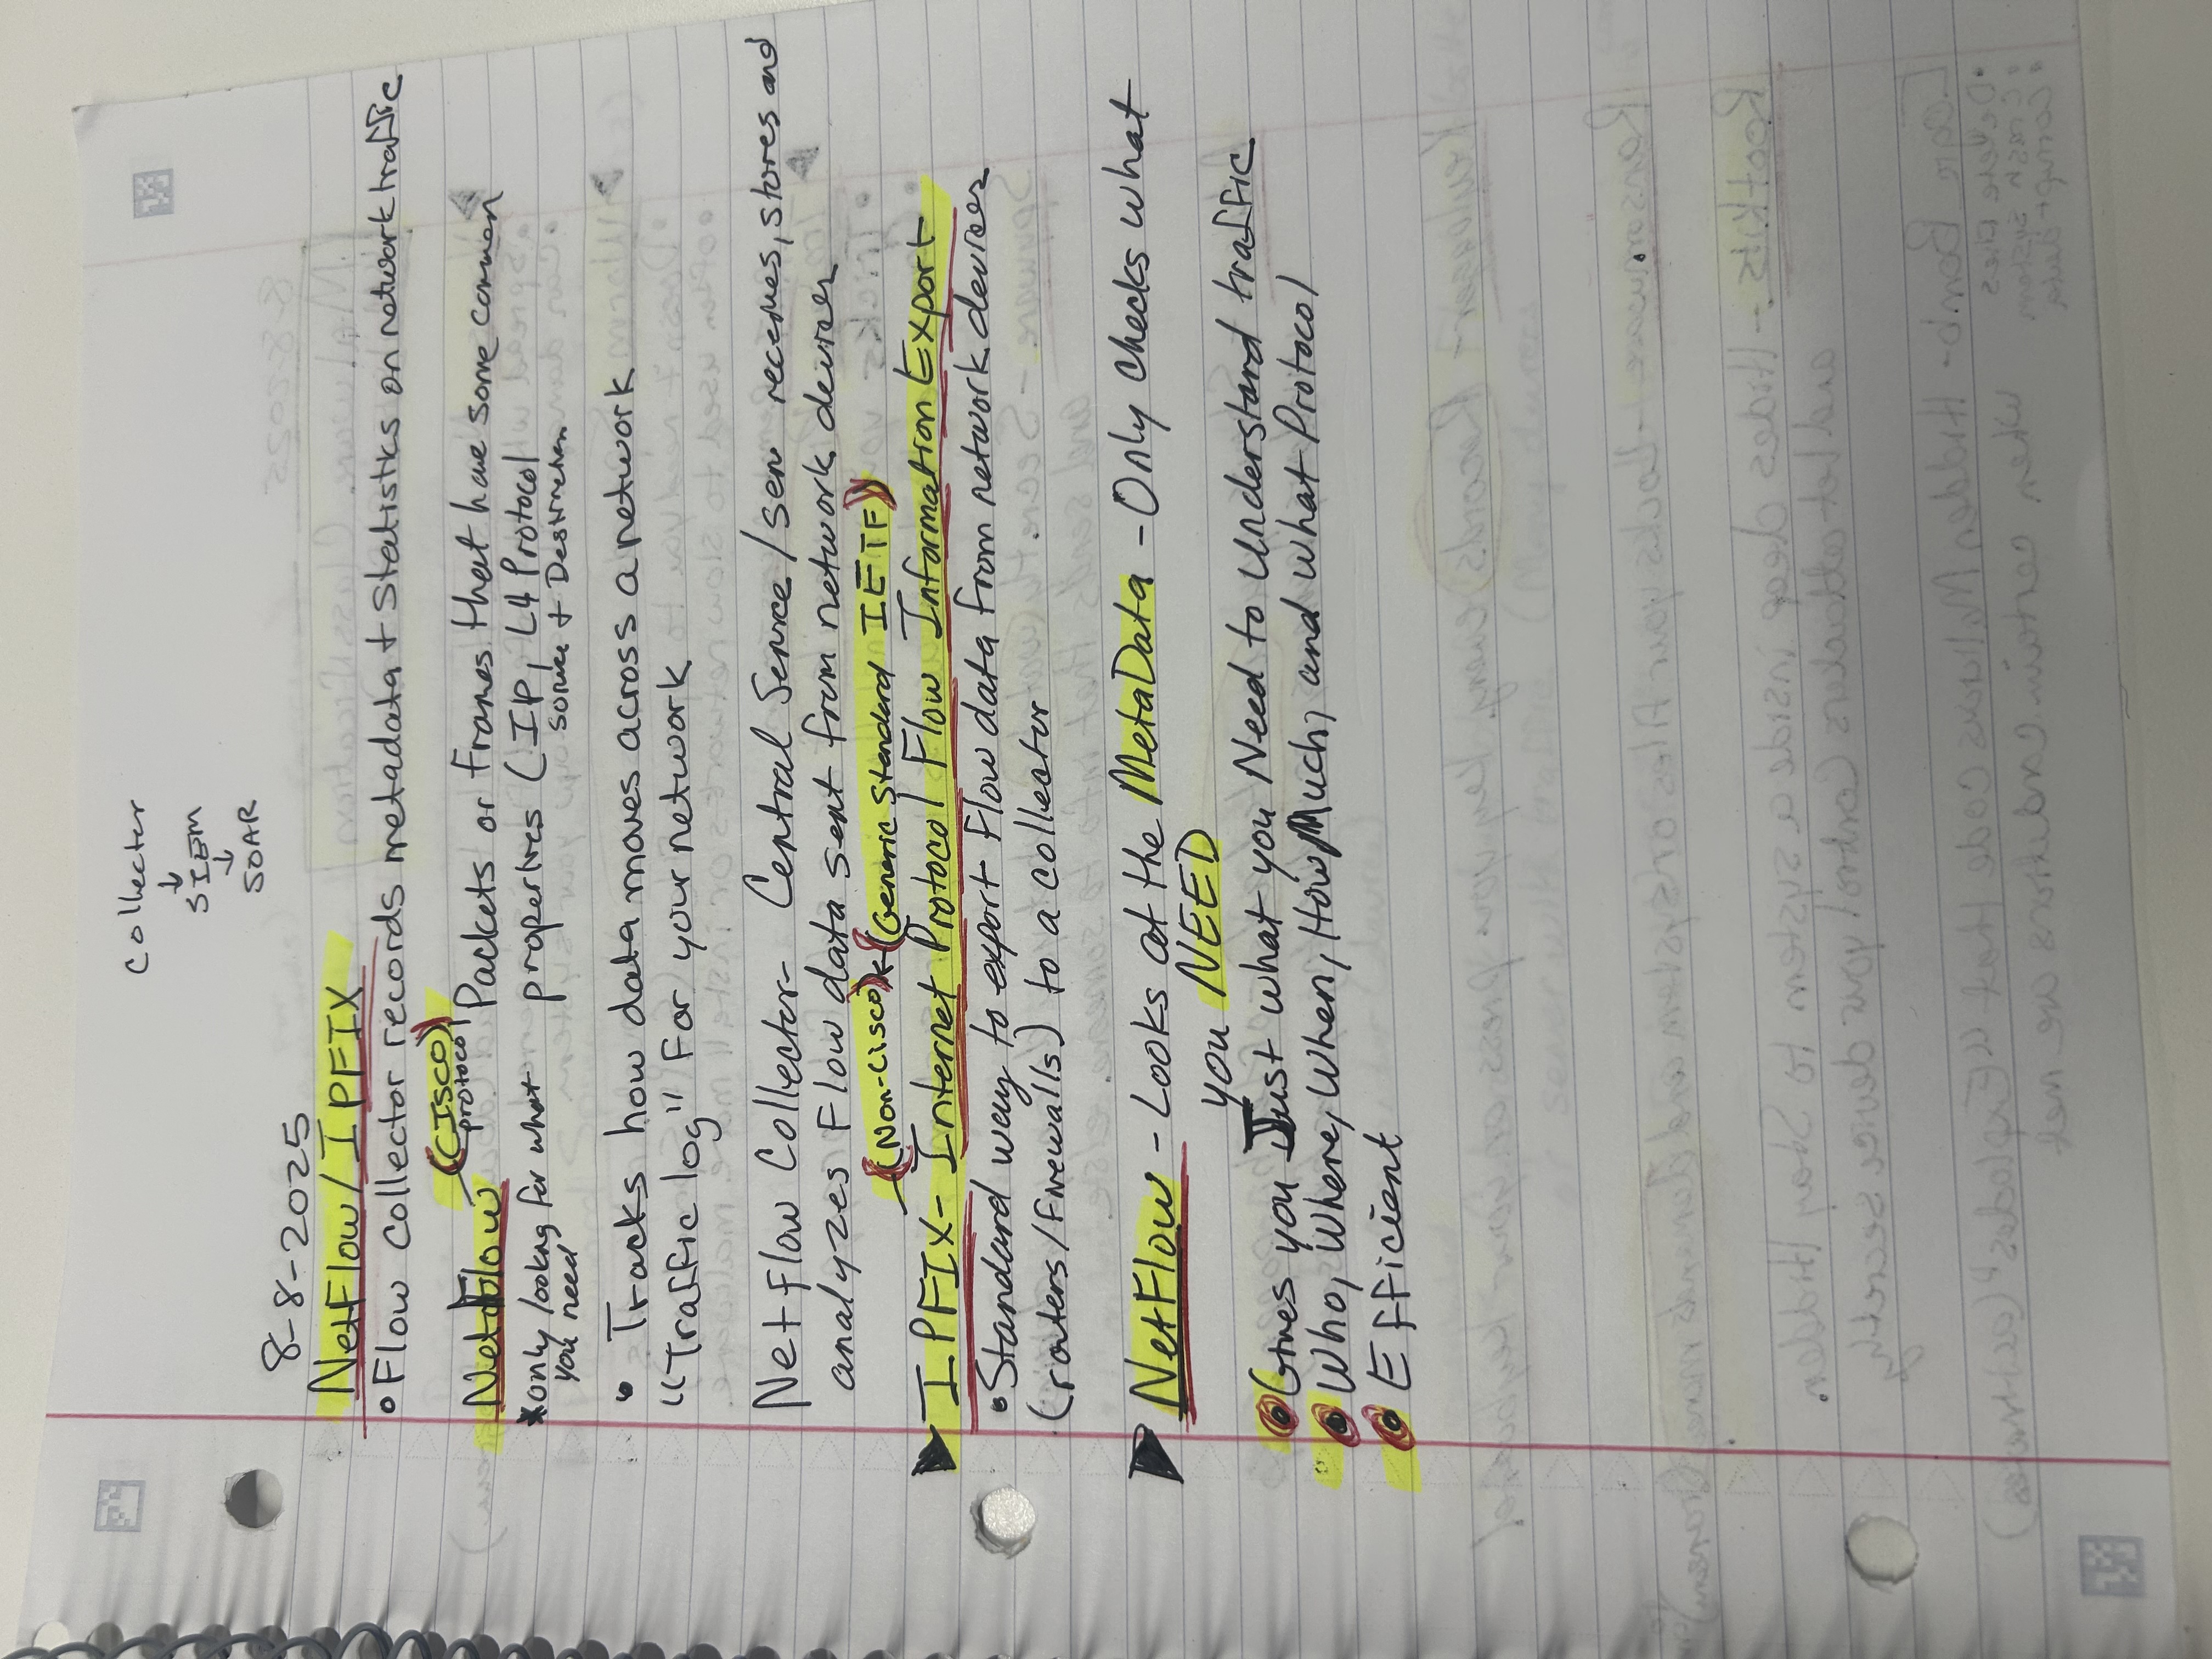 Collector
↓
SIEM
↓
SOAR
8-8-2025
NetFlow/IPFIX
• Flow collector records metadata + Statistics on network traffic
(CISCO)
protocol
NetFlow Packets or Frames that have some common
*only looking for what properties (IP, L4 Protocol
you need Source + Destination
• Tracks how data moves across a network
"Traffic log" For your network
NetFlow Collector- Central Service/serv receives, stores and
analyzes Flow data sent from network devices
(Non-Cisco) ← (Generic Standard IETF)
IPFIX- Internet Protocol Flow Information Export
• Standard way to export Flow data from network devices
(routers/firewalls) to a collector
NetFlow - Looks at the MetaData - Only Checks what
you NEED
• Gives you Just what you Need to Understand traffic
• Who, Where, When, How Much, and what Protocol
• Efficient